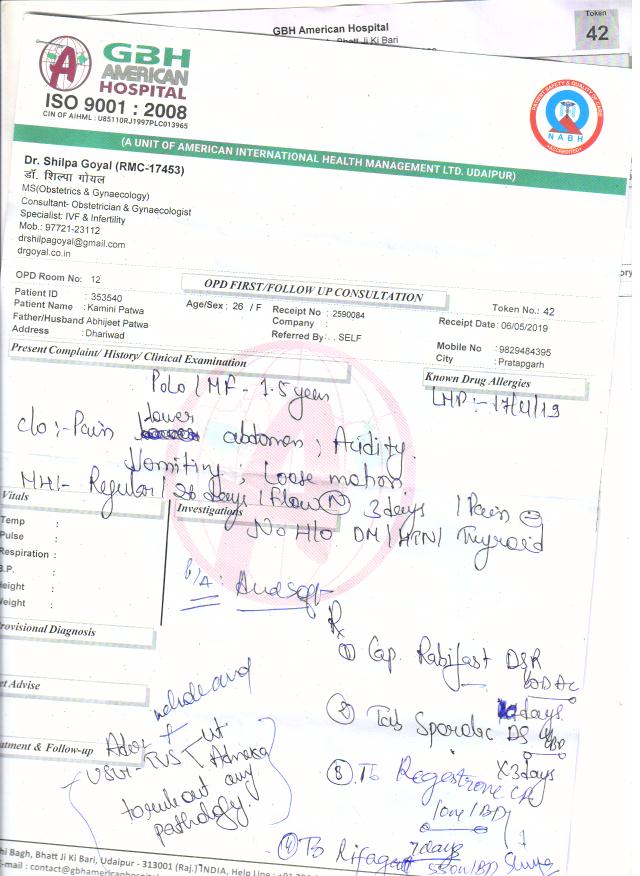 GBH American Hospital
Bhatt Ji Ki Bari
Token
42
GBH
AMERICAN
HOSPITAL
ISO 9001 : 2008
CIN OF AIHML : U85110RJ1997PLC013965
PATIENT SAFETY & QUALITY OF CARE
NABH
ACCREDITED
(A UNIT OF AMERICAN INTERNATIONAL HEALTH MANAGEMENT LTD. UDAIPUR)
Dr. Shilpa Goyal (RMC-17453)
डॉ. शिल्पा गोयल
MS(Obstetrics & Gynaecology)
Consultant- Obstetrician & Gynaecologist
Specialist: IVF & Infertility
Mob.: 97721-23112
drshilpagoyal@gmail.com
drgoyal.co.in
OPD Room No: 12
OPD FIRST/FOLLOW UP CONSULTATION
Token No.: 42
Patient ID : 353540
Patient Name : Kamini Patwa
Age/Sex : 26 / F
Receipt No : 2590084
Receipt Date: 06/05/2019
Father/Husband Abhijeet Patwa
Company :
Mobile No : 9829484395
Address : Dhariwad
Referred By: . SELF
City : Pratapgarh
Present Complaint/ History/ Clinical Examination
Known Drug Allergies
P0L0 / MF - 1.5 years
LMP :- 17/4/19
c/o :- Pain lower abdomen ; Acidity.
Vomiting ; Loose motion.
MH:- Regular / 26 days / Flow N 3 days / Pain
Vitals
Investigations
No H/o DM / HTN / Thyroid
Temp :
Pulse :
Respiration :
B.P. :
eight :
Weight :
P/A: And soft
Rx
rovisional Diagnosis
① Cap. Rabifast DSR
OD AC
days
et Advise
② Tab Sporabc DS
BD
X 3 days
atment & Follow-up
Adv
USG - TVS
Adnexa
to rule out any
pathology
③ Tb Regestrone CR
1 one / BD
7 days
④ Tb Rifagut 550mg / BD
hi Bagh, Bhatt Ji Ki Bari, Udaipur - 313001 (Raj.) INDIA, Help Line :
-mail : contact@gbhamericanhospital